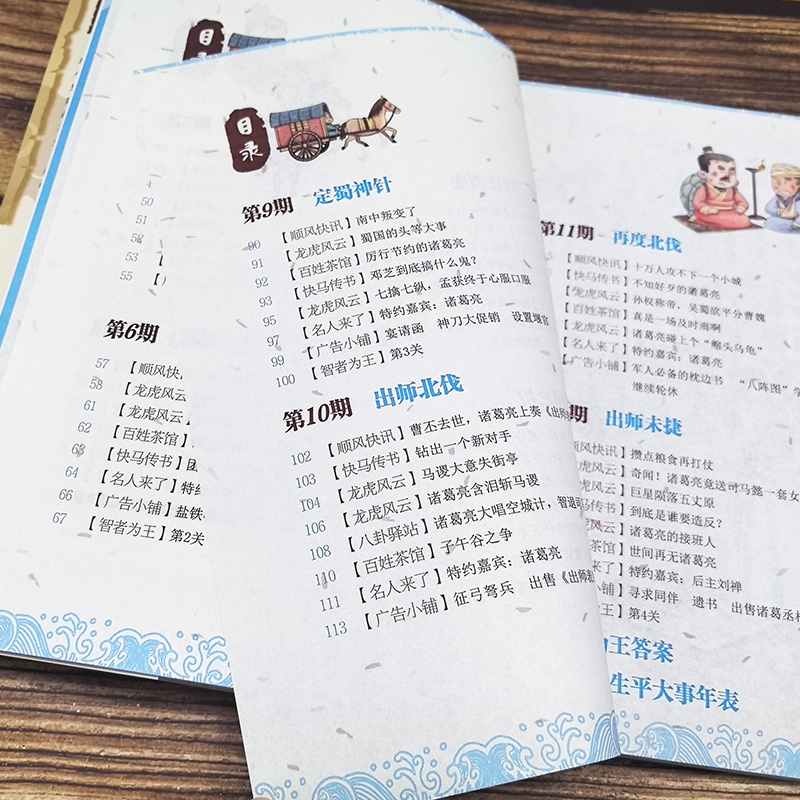 目
目录
4
50
51
52
53
55
第6期
57 【顺风快
58 【龙虎风云】
61 【龙虎风云】
62 【百姓茶馆】
63 【快马传书】
64 【名人来了】特约
66 【广告小铺】盐铁
67 【智者为王】第2关
第9期 定蜀神针
90 【顺风快讯】南中叛变了
91 【龙虎风云】蜀国的头等大事
92 【百姓茶馆】厉行节约的诸葛亮
93 【快马传书】邓芝到底搞什么鬼?
95 【龙虎风云】七擒七纵,孟获终于心服口服
97 【名人来了】特约嘉宾:诸葛亮
99 【广告小铺】宴请函 神刀大促销 设置堰官
100 【智者为王】第3关
第10期 出师北伐
102 【顺风快讯】曹丕去世,诸葛亮上奏《出师
103 【快马传书】钻出一个新对手
104 【龙虎风云】马谡大意失街亭
106 【龙虎风云】诸葛亮含泪斩马谡
108 【八卦驿站】诸葛亮大唱空城计,智退司
110 【百姓茶馆】子午谷之争
111 【名人来了】特约嘉宾:诸葛亮
113 【广告小铺】征弓弩兵 出售《出师表
第11期 再度北伐
【顺风快讯】十万人攻不下一个小城
【快马传书】不知好歹的诸葛亮
【龙虎风云】孙权称帝,吴蜀欲平分曹魏
【百姓茶馆】真是一场及时雨啊
【龙虎风云】诸葛亮碰上个“缩头乌龟”
【名人来了】特约嘉宾:诸葛亮
【广告小铺】军人必备的枕边书 “八阵图”学
继续轮休
期 出师未捷
顺风快讯】攒点粮食再打仗
虎风云】奇闻!诸葛亮竟送司马懿一套女
虎风云】巨星陨落五丈原
马传书】到底是谁要造反?
虎风云】诸葛亮的接班人
茶馆】世间再无诸葛亮
来了】特约嘉宾:后主刘禅
小铺】寻求同伴 遗书 出售诸葛丞相
王】第4关
为王答案
生平大事年表